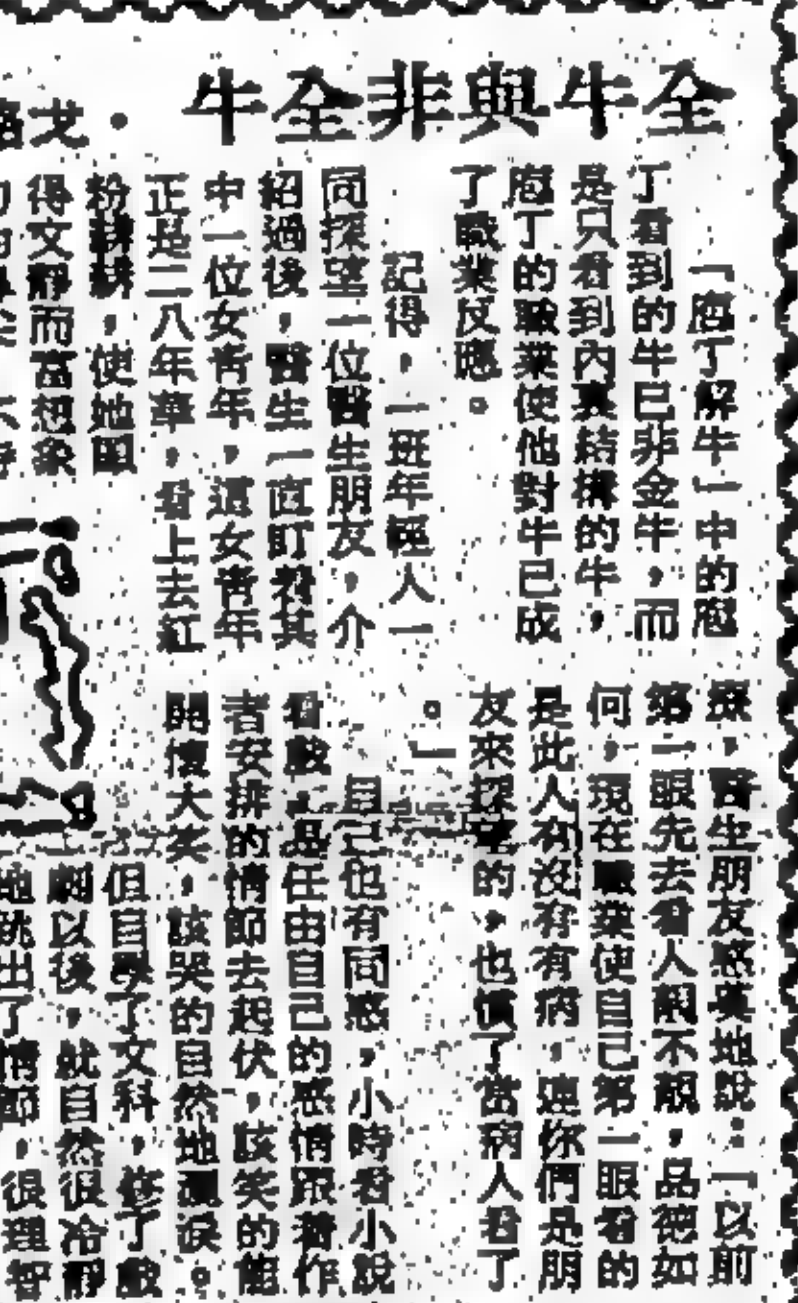 全牛與非全牛
・戈
「庖丁解牛」中的庖
丁看到的牛已非全牛，而
是只看到內裏結構的牛，
庖丁的職業使他對牛已成
了職業反應。
記得，一班年輕人一
同探望一位醫生朋友，介
紹過後，醫生一直盯着其
中一位女青年，這女青年
正是二八年華，看上去紅
粉緋緋，使她
得文靜而富想象
療，醫生朋友感嘆地說：「以前
第一眼先去看人靚不靚，品德如
何，現在職業使自己第一眼看的
是此人有沒有病，連你們是朋
友來探望的，也慣了當病人看了
。」
自己也有同感，小時看小說
看戲，是任由自己的感情跟着作
者安排的情節去起伏，該笑的能
開懷大笑，該哭的自然地
但自學了文科，修了戲
劇以後，就自然很冷靜
地跳出了情節，很理智